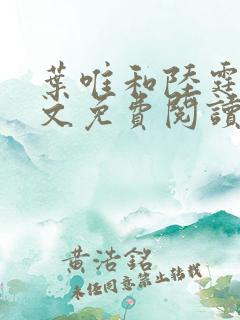 葉唯和陸霆
文免費閱讀
黃浩銘
未經同意禁止轉載